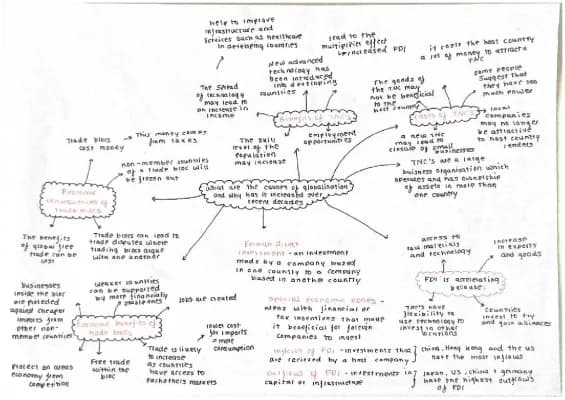 help to improve
infrastructure and
services such as healthcare
in developing countries
lead to the
multiplier effect
increased FDI
it costs the host country
a lot of money to attract a
TNC
New advanced
technology has
been introduced
into developing
countries
The spread
of technology
may lead to
an increase in
income
Benefits of TNC's
The goods of
the TNC may
not be beneficial
to the
host country
some people
suggest that
they have too
much power
Costs of TNC's
local
companies
may no longer
be attractive
to host country
The skill
level of the
population
may increase
employment
opportunities
a new TNC
may lead to
closure of small
businesses
TNC's are a large
business organisation which
operates and has ownership
of assets in more than
one country
Trade blocs
cost money
This money comes
from taxes
non-member countries
of a trade bloc will
be frozen out
Economic
consequences of
trade blocs
What are the causes of globalisation
and why has it increased over
recent decades
The benefits
of global free
trade can be
lost
Trade blocs can lead to
trade disputes where
trading blocs argue
with one another
Foreign Direct
Investment - an investment
made by a company based
in one country to a company
based in another country
access to
raw materials
and technology
increase
in exports
and goods
FDI is accelerating
because:
TNC's have
flexibility to
use technology to
invest in other
locations
Countries
invest to try
and gain alliances
businesses
inside the bloc
are protected
against cheaper
imports from
other non-
member countries
Weaker countries
can be supported
by more financially
stable ones
Jobs are created
Economic Benefits of
trade blocs
lower cost
for imports
→ more
consumption
Protect an areas
economy from
competition
Free trade
within the
bloc
Trade is likely
to increase
as countries
have access to
each others markets
Special economic zones -
areas with financial or
tax incentives that make
it beneficial for foreign
companies to invest
Inflows of FDI - investments that
are recieved by a host company
China, Hong Kong and the US
have the most inflows
Outflows of FDI - investments in
capital or infrastructure
Japan, US, China & Germany
have the highest outflows
of FDI